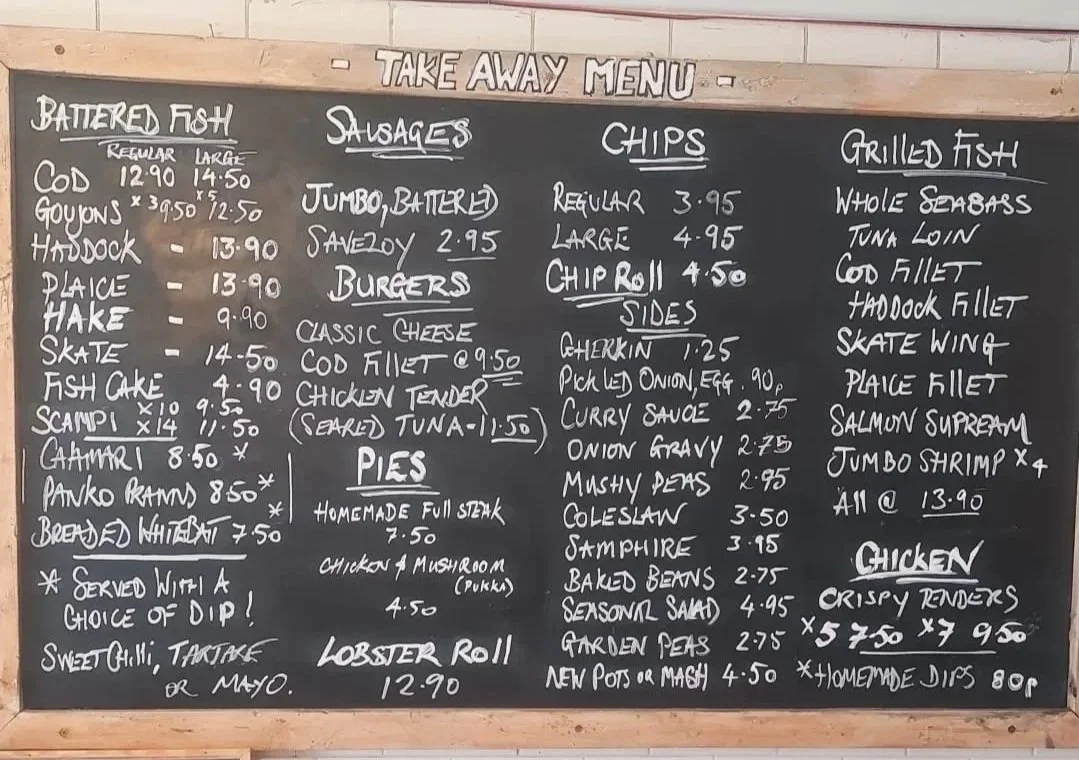 - TAKE AWAY MENU -
BATTERED FISH
REGULAR LARGE
COD 12.90 14.50
GOUJONS x3 9.50 x5 12.50
HADDOCK - 13.90
PLAICE - 13.90
HAKE - 9.90
SKATE - 14.50
FISH CAKE 4.90
SCAMPI x10 9.50
x14 11.50
CALAMARI 8.50 *
PANKO PRAWNS 8.50 *
BREADED WHITEBAIT 7.50 *
* SERVED WITH A
CHOICE OF DIP!
SWEET CHILLI, TARTARE
OR MAYO.
SAUSAGES
JUMBO, BATTERED
SAVELOY 2.95
BURGERS
CLASSIC CHEESE
COD FILLET @ 9.50
CHICKEN TENDER
(SEARED TUNA - 11.50)
PIES
HOMEMADE FULL STEAK
7.50
CHICKEN & MUSHROOM
(PUKKA)
4.50
LOBSTER ROLL
12.90
CHIPS
REGULAR 3.95
LARGE 4.95
CHIP ROLL 4.50
SIDES
GHERKIN 1.25
PICKLED ONION, EGG. 90p
CURRY SAUCE 2.75
ONION GRAVY 2.75
MUSHY PEAS 2.95
COLESLAW 3.50
SAMPHIRE 3.95
BAKED BEANS 2.75
SEASONAL SALAD 4.95
GARDEN PEAS 2.75
NEW POTS OR MASH 4.50
GRILLED FISH
WHOLE SEABASS
TUNA LOIN
COD FILLET
HADDOCK FILLET
SKATE WING
PLAICE FILLET
SALMON SUPREAM
JUMBO SHRIMP x4
All @ 13.90
CHICKEN
CRISPY TENDERS
x5 7.50 x7 9.50
*HOMEMADE DIPS 80p